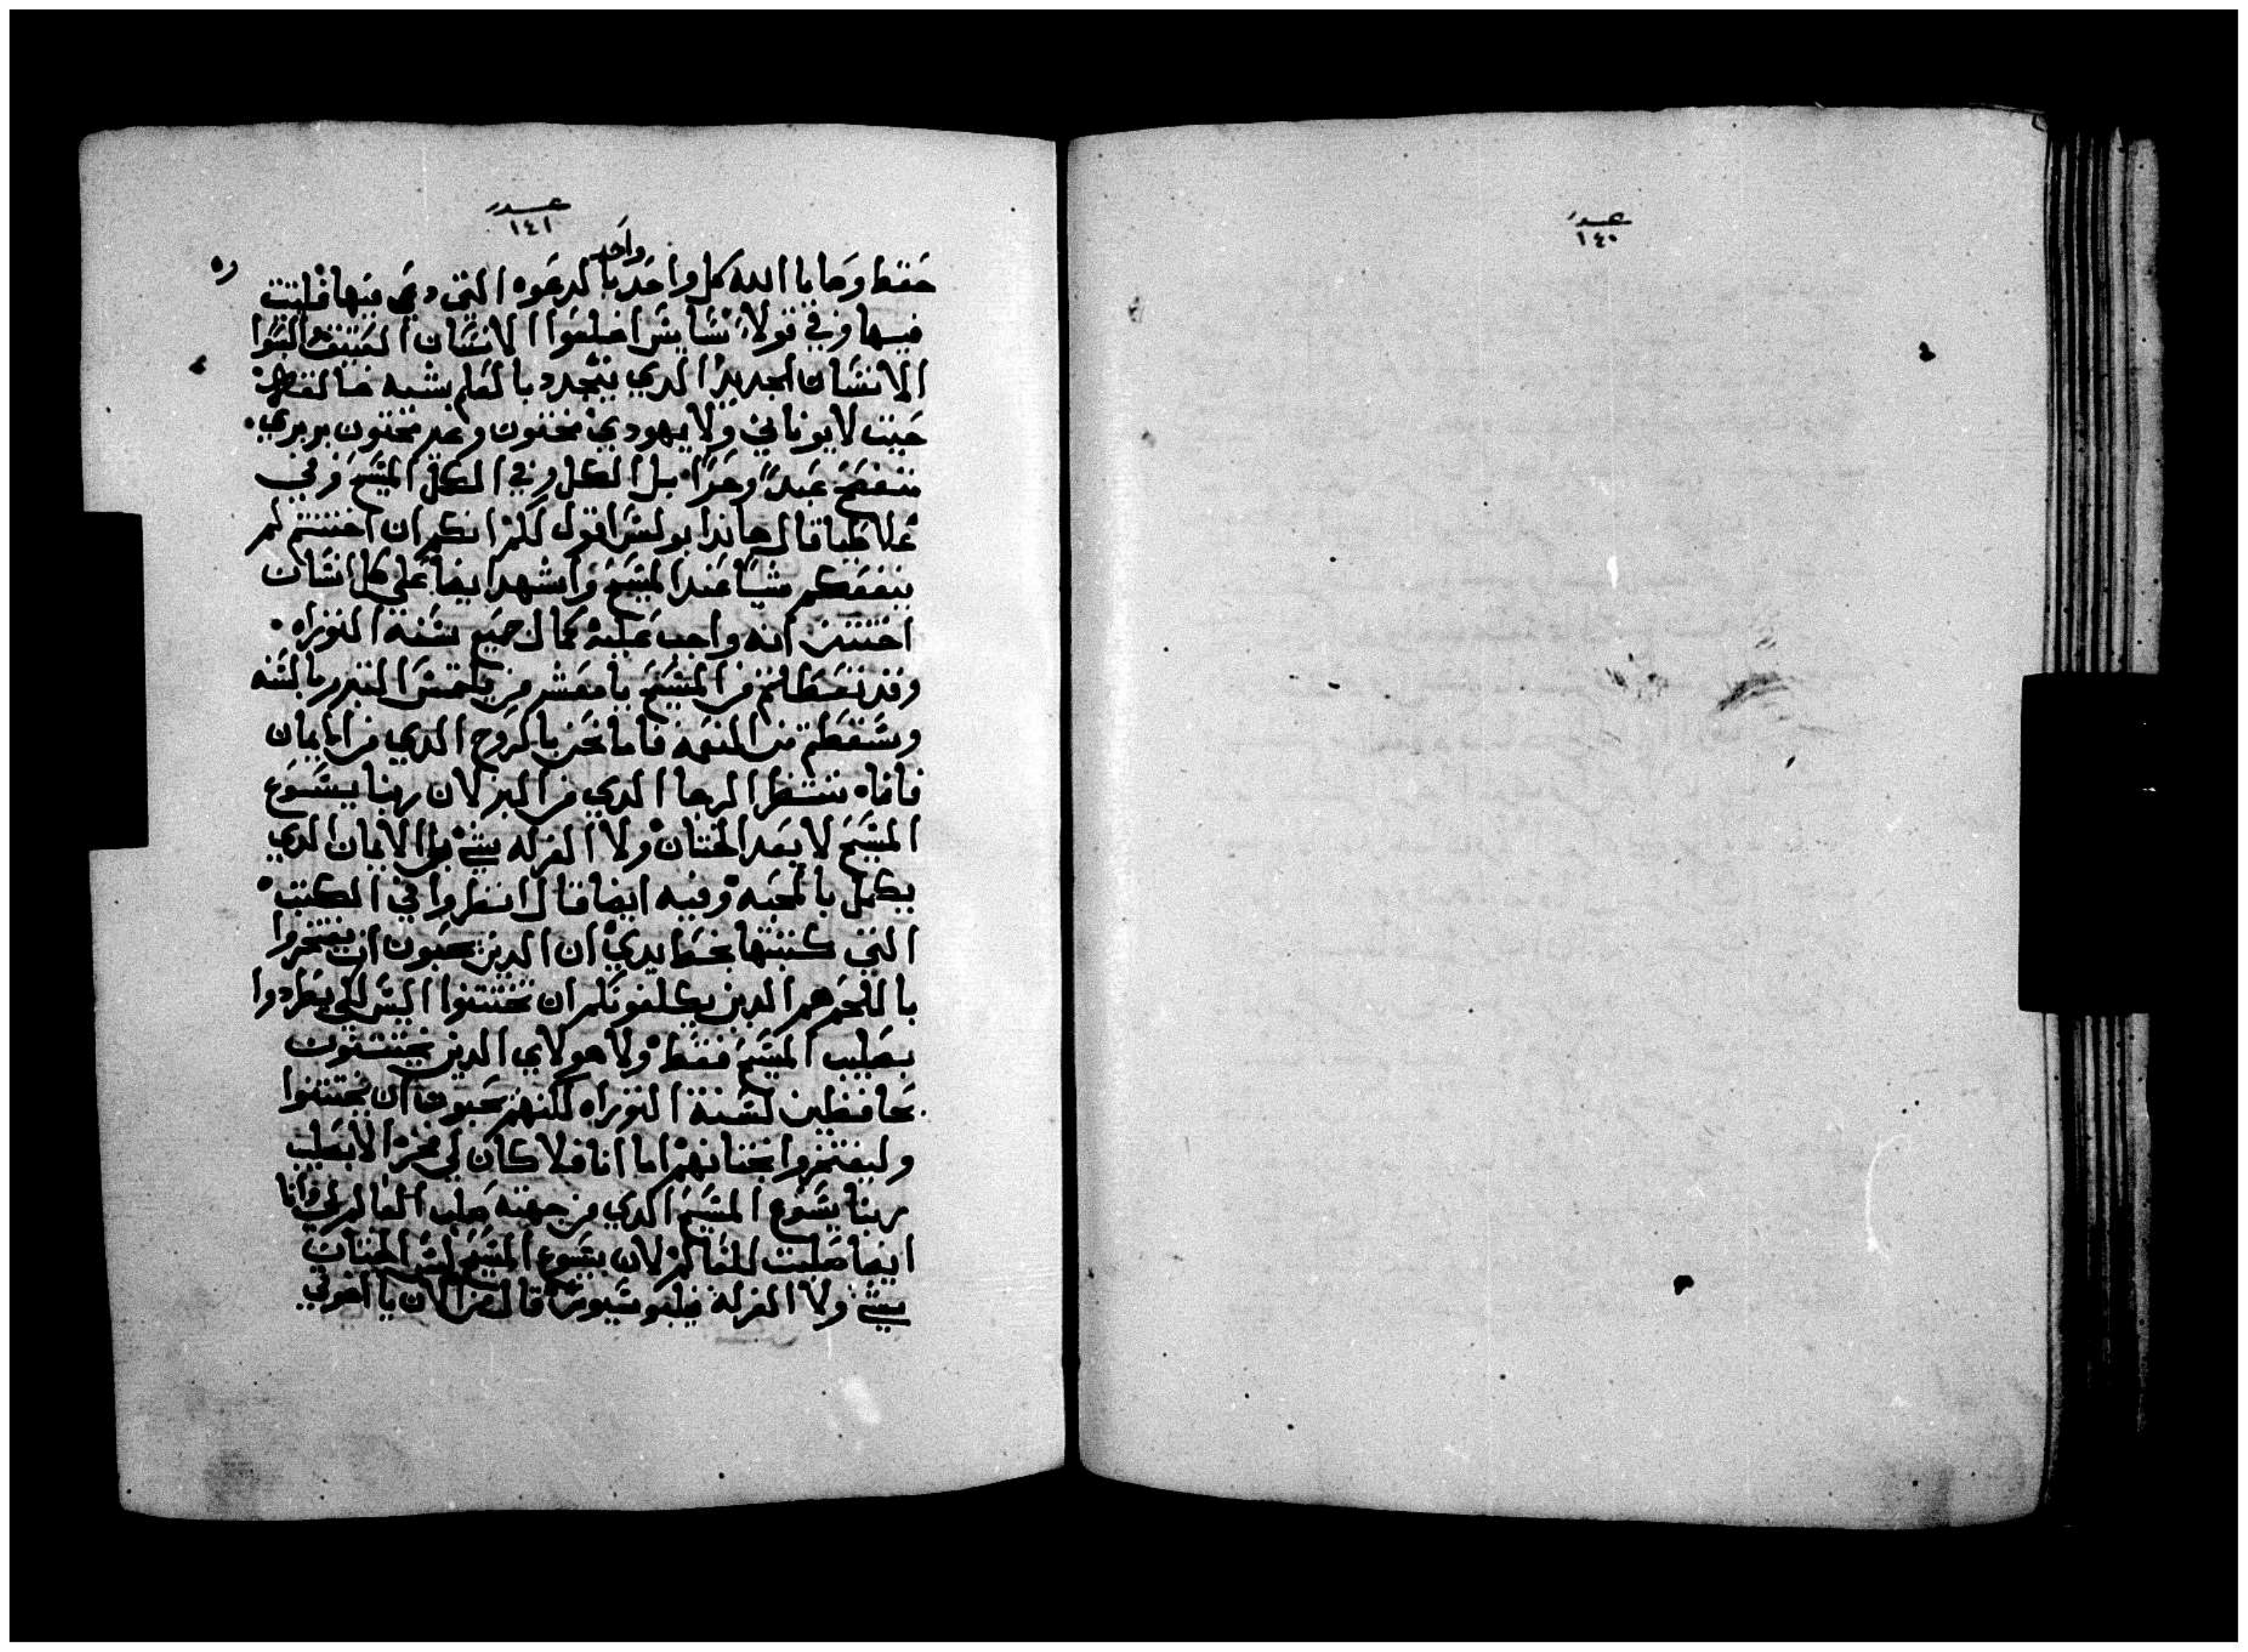 عدد
١٤٠
عدد
١٤١
واحد
حفظ وصايا الله كل واحد بالدعوه التي دعي فيها فليتبت
فيها وفي قولاسايس اخلعوا الانسان العتيق والبسوا
الانسان الجديد الدي يتجدد بالعلم بشبه خالقه
حيت لا يوناني ولا يهودي مختون وغير مختون بربري
عبد وحر بل الكل وفي الكل المسيح وفي
غلاطيا قال هاندا بولس اقول لكم انكم ان اختتنتم لم
ينفعكم شيا عند المسيح واشهد ايضا علي كل انسان
اختتن انه واجب عليه كمال جميع سنة التوراه
وقد تعطلتم من المسيح يا معشر من يلتمس التبرر بالسنه
وسقطتم من النعمه فاما نحن بالروح الدي من الايمان
فاناه ننتظر الرجا الدي من البر لان ربنا يسوع
المسيح لا يعد الختان ولا الغرله شي بل الايمان الدي
يكمل بالمحبه وفيه ايضا قال انظروا في الكتب
التي كتبتها بخط يدي ان الدين يحبون ان يفتخروا
باللحم هم الدين يكلفونكم ان تختتنوا اليس لكي يطردوا
بصليب المسيح فقط ولا هولاي الدين يختتنون
بحافظين لسنة التوراه لكنهم يحبون ان تختتنوا
وليفتخروا بختانهم اما انا فلا كان لي فخر الا بصليب
ربنا يسوع المسيح الدي من جهته صلب العالم لي وانا
ايضا صلبت للعالم لان يسوع المسيح ليس الختان
بشي ولا الغرله فيلبوسيوس قال من الان يا اخوتي